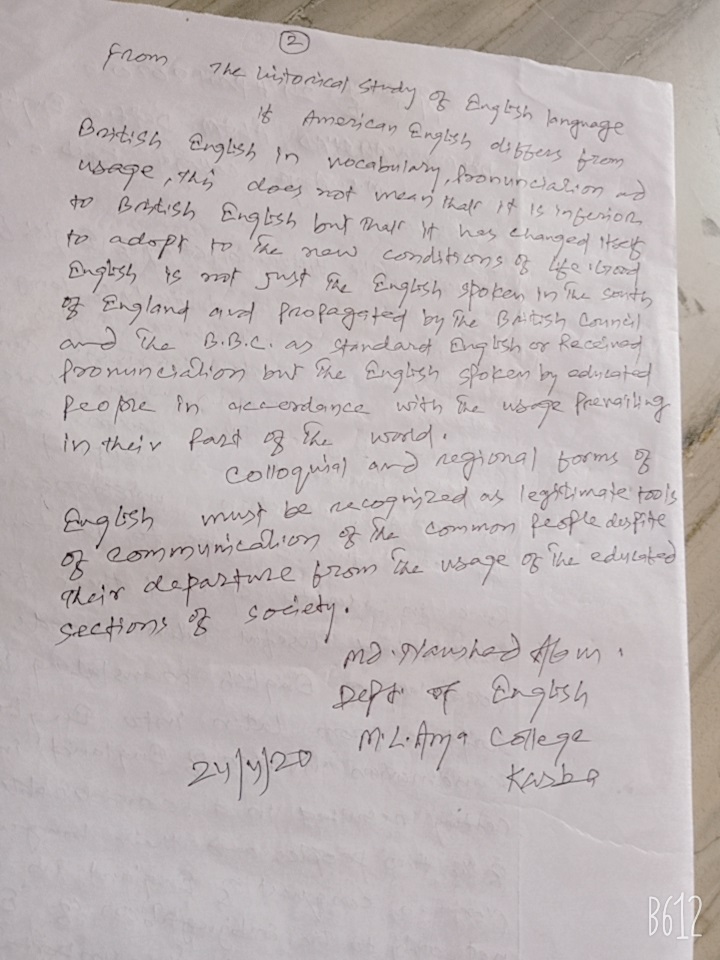 2
From The historical study of English language
If American English differs from
British English in vocabulary, pronunciation ad
usage, this does not mean that it is inferior
to British English but that it has changed itself
to adopt to The new conditions of life. Good
English is not just The English spoken in The south
of England and propagated by The British Council
and The B.B.C. as Standard English or Received
Pronunciation but The English spoken by educated
people in accordance with The usage prevailing
in their part of The world.
Colloquial and regional forms of
English must be recognized as legitimate tools
of communication of The common people despite
Their departure from The usage of The educated
sections of society.
Md. Naushad Alam.
Dept. of English
M.L. Arya College
24/4/20
Kasba
B612